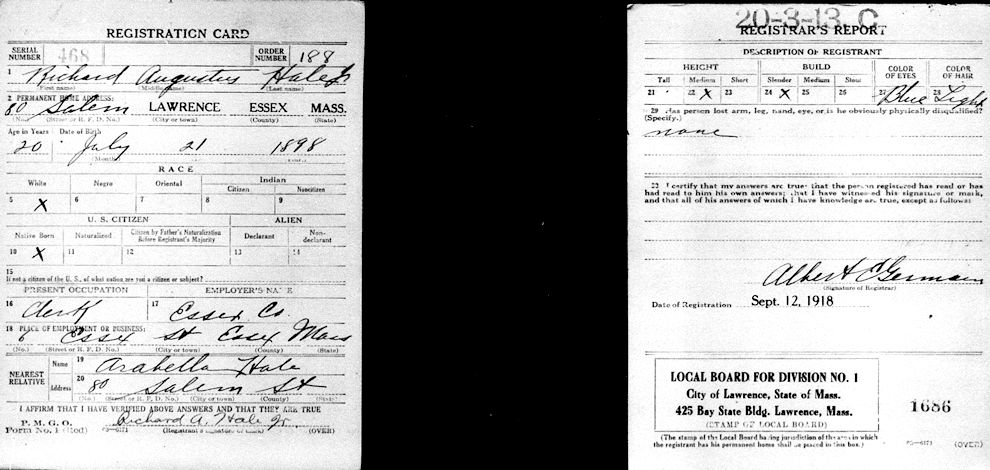 REGISTRATION CARD
SERIAL NUMBER 468 ORDER NUMBER 188
1 Richard Augustus Hale Jr
(First name) (Middle name) (Last name)
2 PERMANENT HOME ADDRESS:
80 Salem LAWRENCE ESSEX MASS.
(No.) (Street or R. F. D. No.) (City or town) (County) (State)
Age in Years Date of Birth
20 July 21 1898
(Month)
RACE
White Negro Oriental Indian
Citizen Noncitizen
5 X 6 7 8 9
U. S. CITIZEN ALIEN
Native Born Naturalized Citizen by Father's Naturalization Before Registrant's Majority Declarant Non-declarant
10 X 11 12 13 14
15
If not a citizen of the U. S., of what nation are you a citizen or subject?
PRESENT OCCUPATION EMPLOYER'S NAME
16 Clerk 17 Essex Co.
18 PLACE OF EMPLOYMENT OR BUSINESS:
6 Essex St Essex Mass
(No.) (Street or R. F. D. No.) (City or town) (County) (State)
NEAREST RELATIVE Name 19 Arabella Hale
Address 20 80 Salem St
(No.) (Street or R. F. D. No.) (City or town) (County) (State)
I AFFIRM THAT I HAVE VERIFIED ABOVE ANSWERS AND THAT THEY ARE TRUE
P. M. G. O.
Form No. 1 (Red) 03-6171 Richard A. Hale Jr.
(Registrant's signature or mark) (OVER)
20-3-13. C
REGISTRAR'S REPORT
DESCRIPTION OF REGISTRANT
HEIGHT BUILD COLOR OF EYES COLOR OF HAIR
Tall Medium Short Slender Medium Stout
21 22 X 23 24 X 25 26 27 Blue 28 Light
29 Has person lost arm, leg, hand, eye, or is he obviously physically disqualified? (Specify.)
none
I certify that my answers are true; that the person registered has read or has
had read to him his own answers; that I have witnessed his signature or mark,
and that all of his answers of which I have knowledge are true, except as follows:
Albert C German
(Signature of Registrar)
Date of Registration Sept. 12, 1918
LOCAL BOARD FOR DIVISION NO. 1
City of Lawrence, State of Mass.
425 Bay State Bldg. Lawrence, Mass.
(STAMP OF LOCAL BOARD)
1686
(The stamp of the Local Board having jurisdiction of the area in which
the registrant has his permanent home shall be placed in this box.)
03-6171 (OVER)